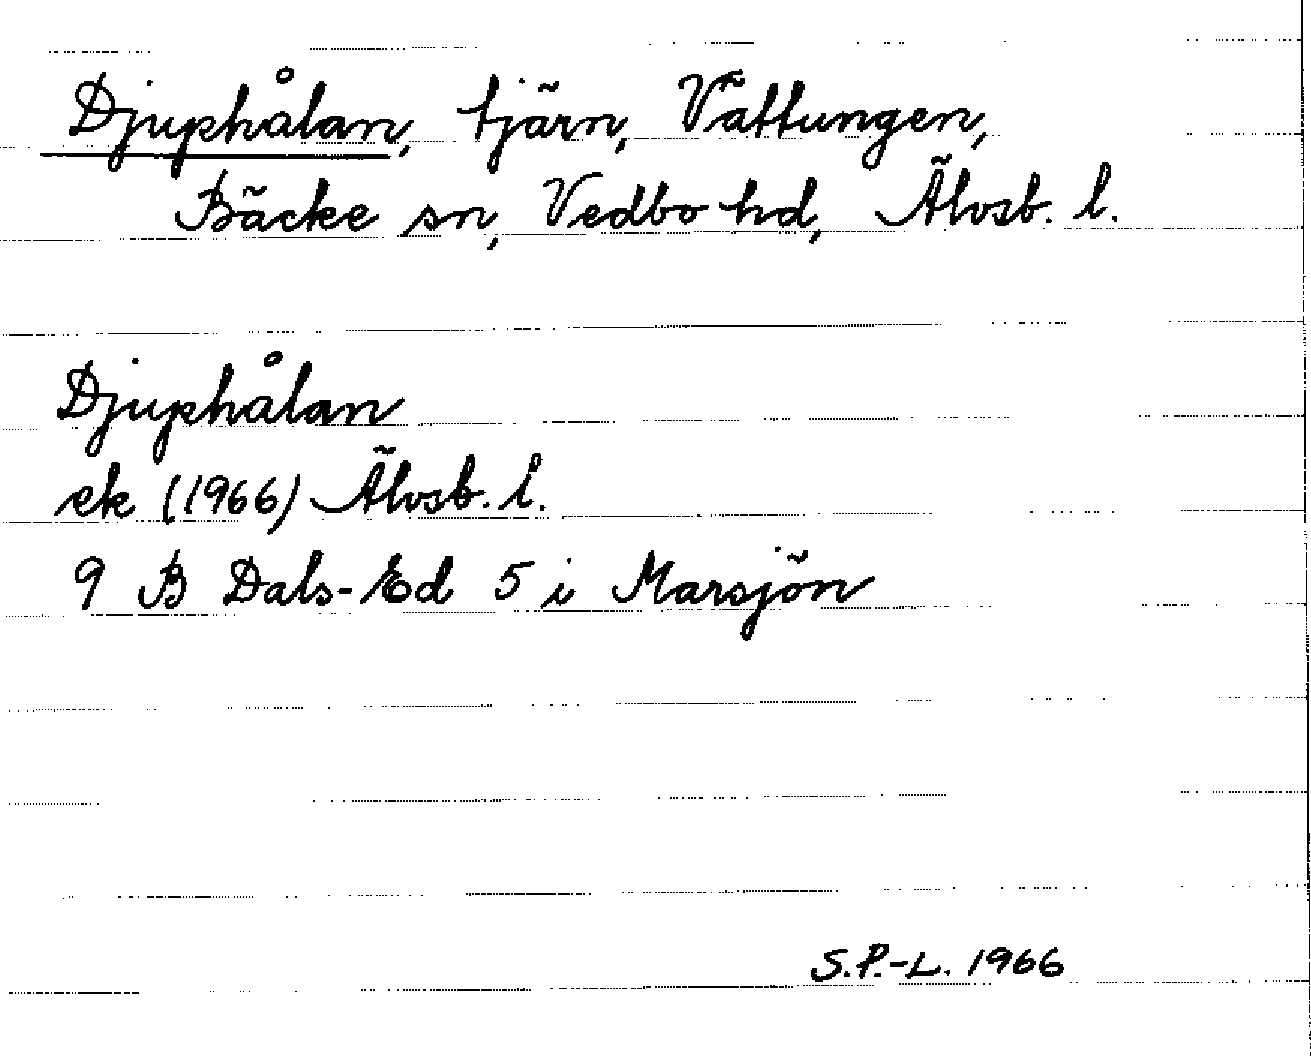 Djuphålan, tjärn, Vättungen,
Bäcke sn, Vedbo hd, Älvsb. l.
Djuphålan
ek (1966) Älvsb. l.
9 B Dals-Ed 5 i Marsjön
S.P.-L. 1966